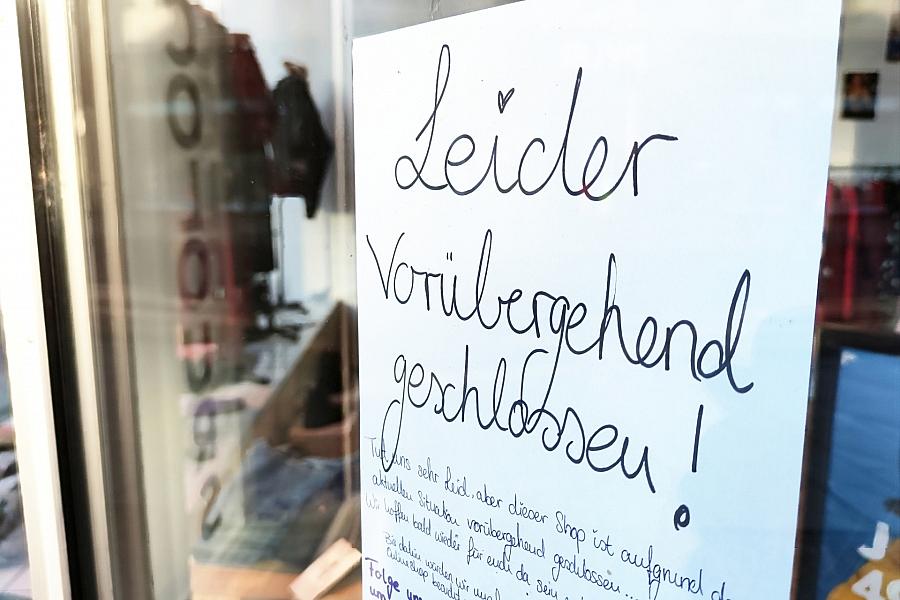 Leider
Vorübergehend
geschlossen!
Tut uns sehr leid, aber dieser Shop ist aufgrund
aktuellen Situation vorübergehend geschlossen...
Wir hoffen bald wieder für euch da sein
Bis dahin würden wir uns
Onlineshop besucht
Folge uns